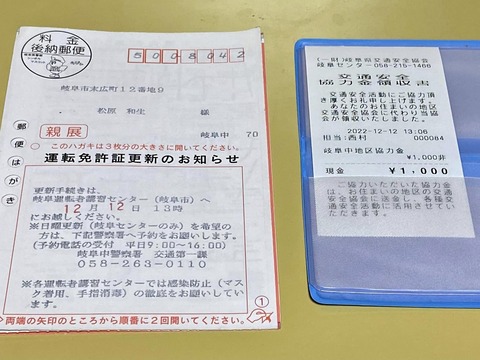 料金
後納郵便
5008042
岐阜市末広町12番地9
松原 和生 様
親展
岐阜中 70
郵便はがき
○ このハガキは3枚分の大きさに開いてください。
運転免許証更新のお知らせ
更新手続きは、
岐阜運転者講習センター(岐阜市)へ
12月12日 13時
にお越しください。
※日曜更新(岐阜センターのみ)を希望の
方は、下記警察署へ予約をお願いします。
(予約電話の受付 平日9:00~16:00)
岐阜中警察署 交通第一課
058-263-0110
※各運転者講習センターでは感染防止(マス
ク着用、手指消毒)の徹底をお願いしてい
ます。
①
両端の矢印のところから順番に2回開いてください。
(一財)岐阜県交通安全協会
岐阜センター058-215-1466
交通安全
協力金領収書
交通安全活動にご協力頂
き厚くお礼申し上げます。
あなたのお住いの地区の
交通安全協会に代わり当協
会が領収いたしました。
2022-12-12 13:06
担当:西村 000084
岐阜中地区協力金
¥1,000非
現金 ¥1,000
ご協力いただいた協力金
は、あなたのお住いの地区の交通
安全協会に送金し、各種交通
安全活動に活用させていただ
きます。